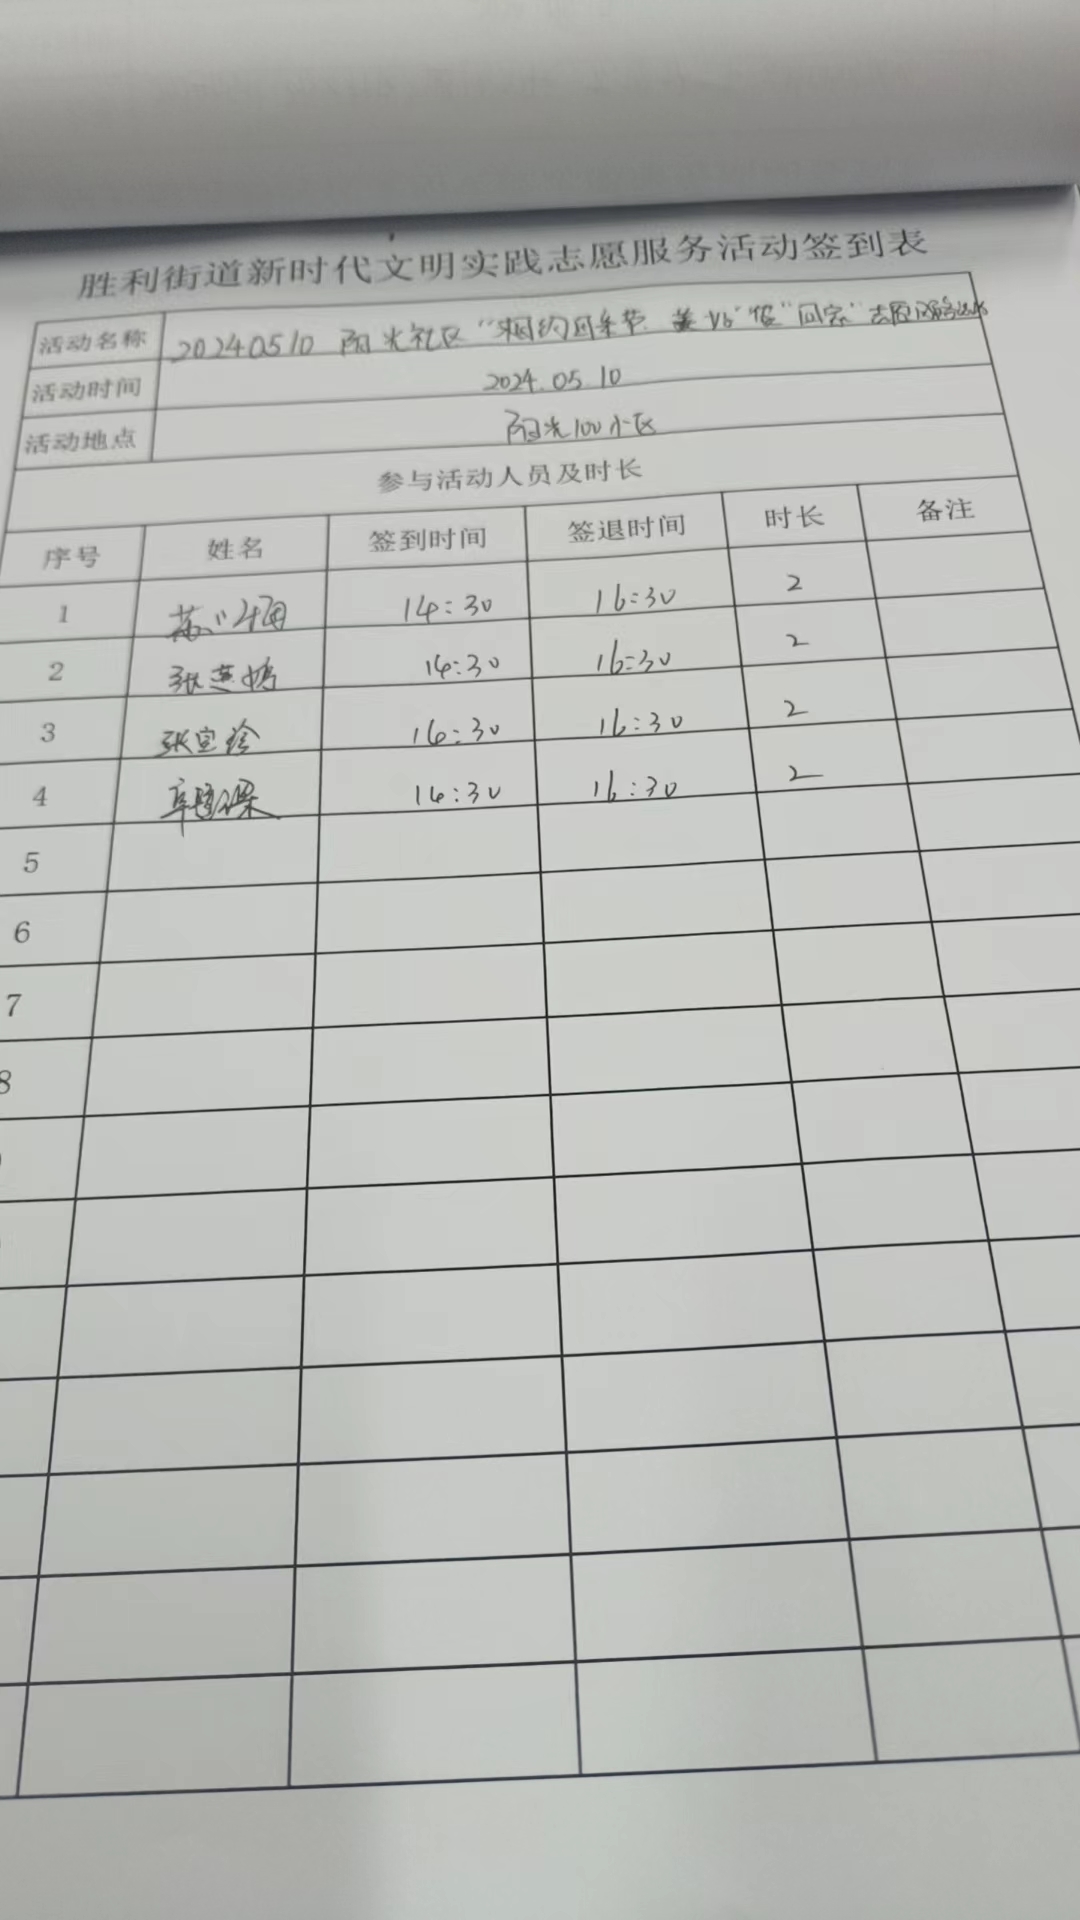 胜利街道新时代文明实践志愿服务活动签到表
活动名称 20240510 阳光社区"相约回来节 "回家"志愿服务活动
活动时间 2024.05.10
活动地点 阳光100小区
参与活动人员及时长
序号 姓名 签到时间 签退时间 时长 备注
1 14:30 16:30 2
2 张燕娟 14:30 16:30 2
3 张宝玲 14:30 16:30 2
4 14:30 16:30 2
5
6
7
8